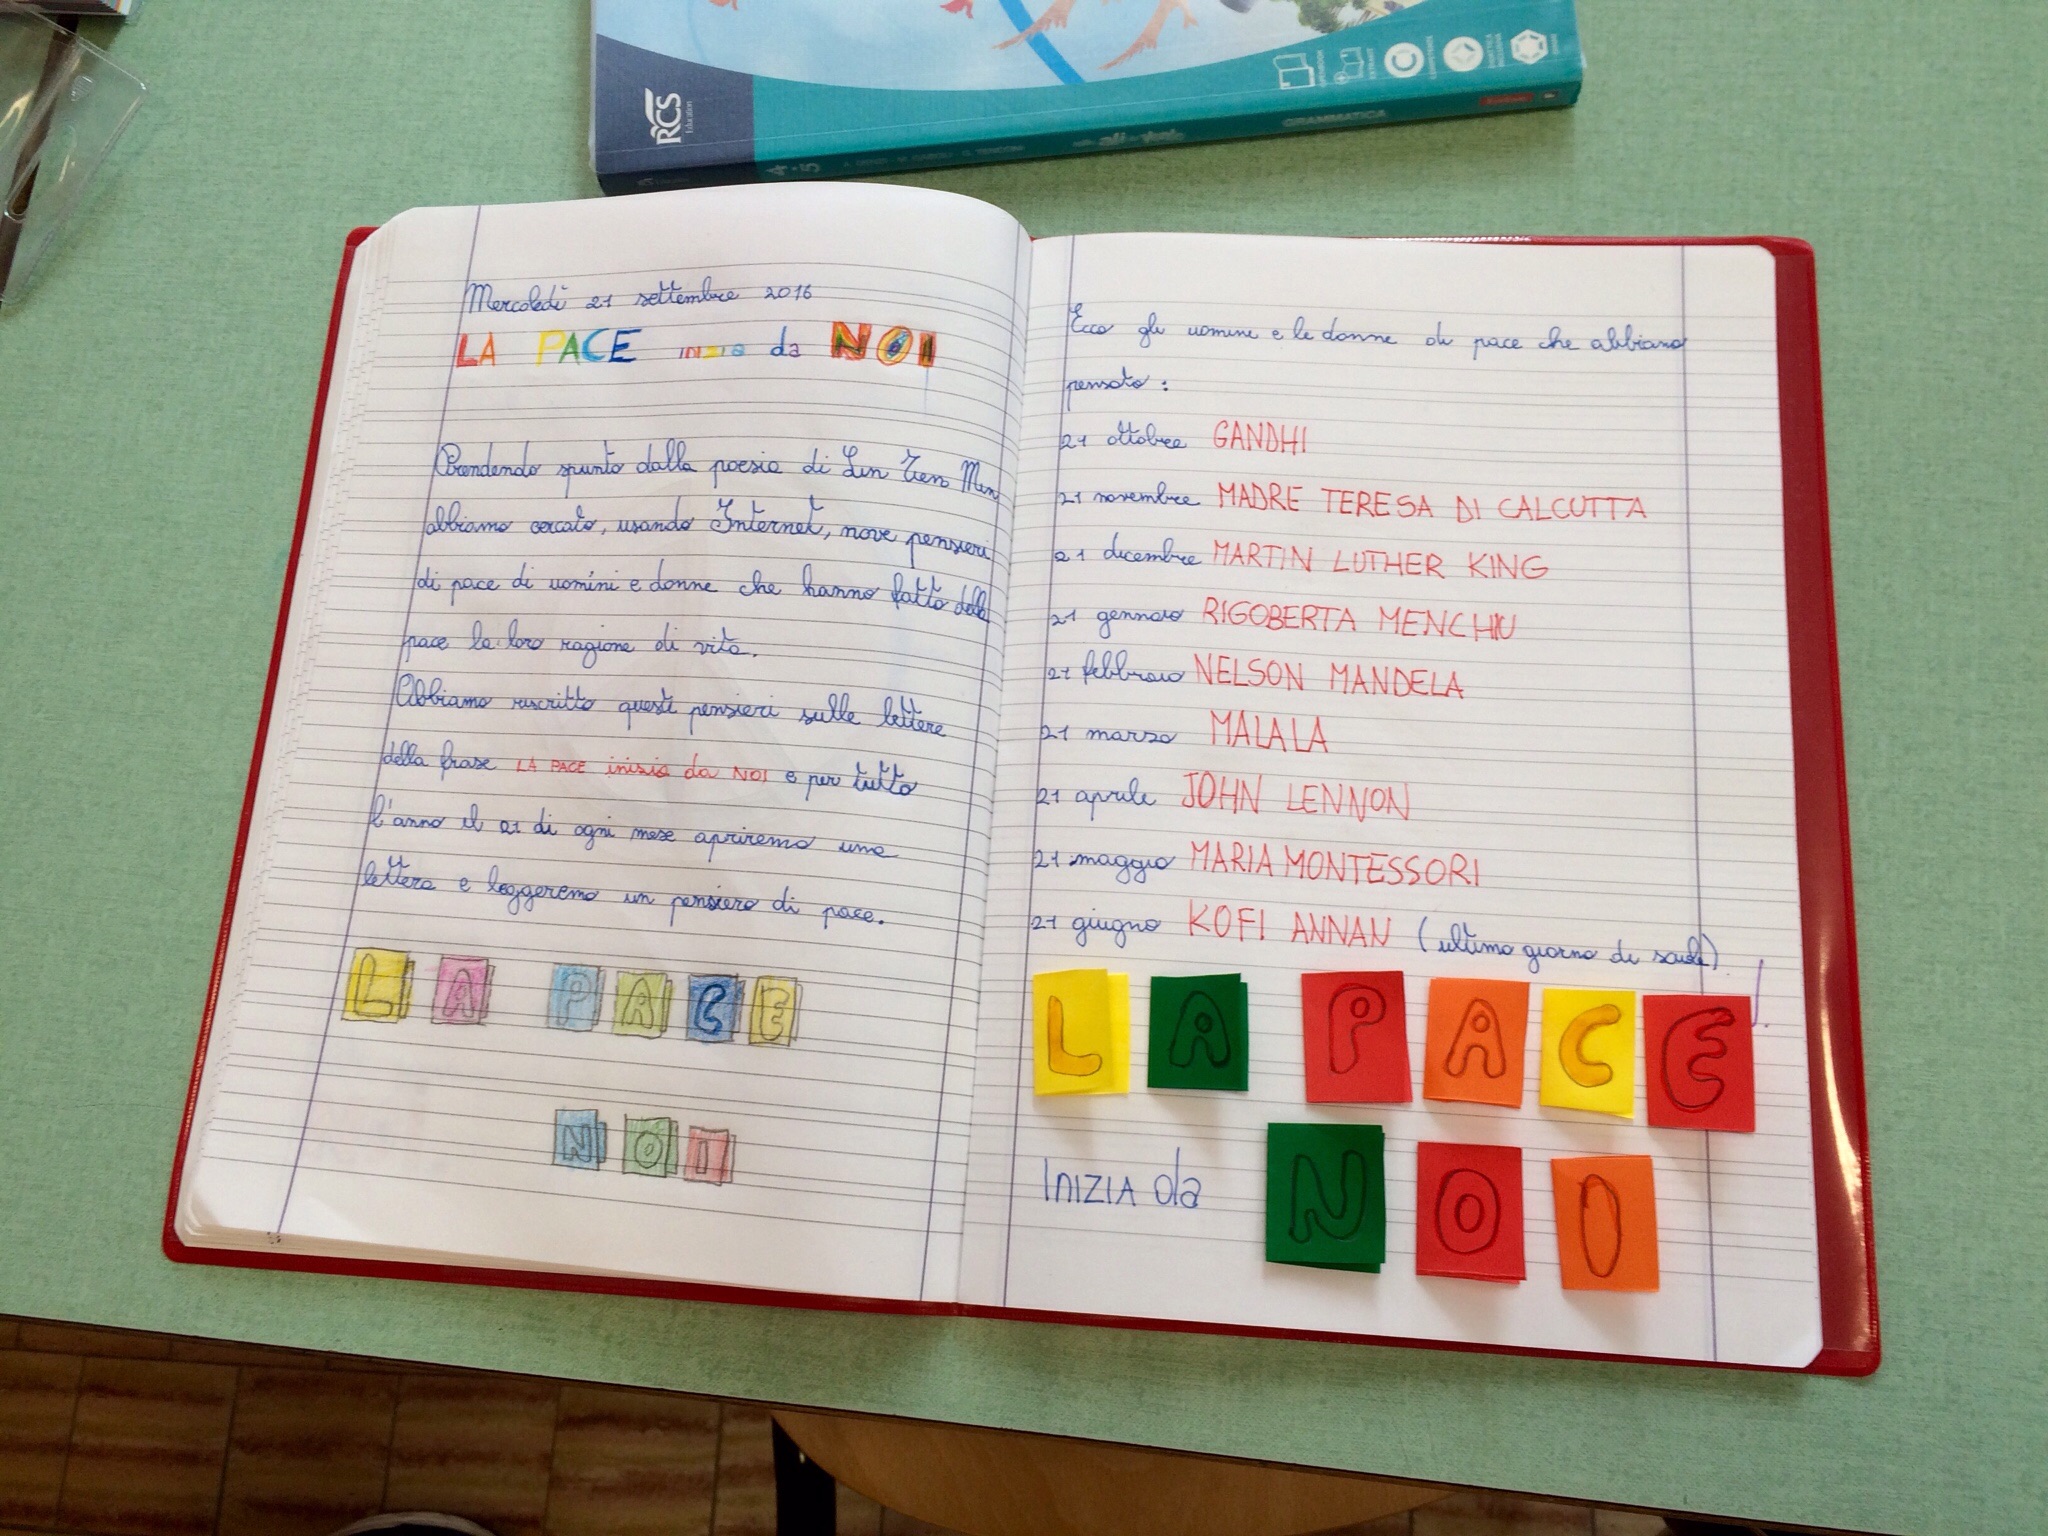 RCS
Education
4-5
GRAMMATICA
Mercoledì 21 settembre 2016
LA PACE inizia da NOI
Prendendo spunto dalla poesia di Lin Tien Min
abbiamo cercato, usando Internet, nove pensieri
di pace di uomini e donne che hanno fatto della
pace la loro ragione di vita.
Abbiamo riscritto questi pensieri sulle lettere
della frase LA PACE inizia da NOI e per tutto
l'anno il 21 di ogni mese apriremo una
lettera e leggeremo un pensiero di pace.
LA PACE
NOI
Ecco gli uomini e le donne di pace che abbiamo
pensato:
21 ottobre GANDHI
21 novembre MADRE TERESA DI CALCUTTA
21 dicembre MARTIN LUTHER KING
21 gennaio RIGOBERTA MENCHIU
21 febbraio NELSON MANDELA
21 marzo MALALA
21 aprile JOHN LENNON
21 maggio MARIA MONTESSORI
21 giugno KOFI ANNAN (ultimo giorno di scuola)
LA PACE!
INIZIA da NOI